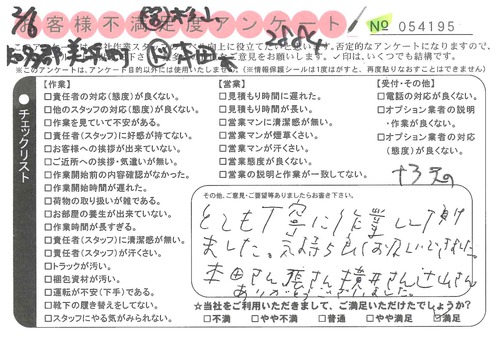 2/6
お客様不満足度アンケート
No 054195
知多郡美浜町
このアンケートは、
社作業スタッフの
向上に役立てたいと思います。否定的なアンケートになりますので、
ご意見をお願いします。✓印は、いくつでも結構です。
※このアンケートは、アンケート目的以外には使用いたしません（※情報保護シールは1度はがすと、再度貼りなおすことはできません）
チェックリスト
【作業】
□責任者の対応（態度）が良くない。
□他のスタッフの対応（態度）が良くない。
□作業を見ていて不安がある。
□責任者（スタッフ）に好感が持てない。
□お客様への挨拶が出来ていない。
□ご近所への挨拶・気遣いが無い。
□作業開始前の内容確認がなかった。
□作業開始時間が遅れた。
□荷物の取り扱いが雑である。
□お部屋の養生が出来ていない。
□作業時間が長すぎる。
□責任者（スタッフ）に清潔感が無い。
□責任者（スタッフ）が汗くさい。
□トラックが汚い。
□梱包資材が汚い。
□運転が不安（下手）である。
□靴下の履き替えをしてない。
□スタッフにやる気がみられない。
【営業】
□見積もり時間に遅れた。
□見積もり時間が長い。
□営業マンに清潔感が無い。
□営業マンが煙草くさい。
□営業マンが汗くさい。
□営業態度が良くない。
□営業の説明と作業が一致してない。
【受付・その他】
□電話の対応が良くない。
□オプション業者の説明
・作業が良くない。
□オプション業者の対応
（態度）が良くない。
その他、ご意見・ご要望等ありましたらお書き下さい。
とても丁寧に作業して頂け
ました。気持ち良くお願いできました。
本田さん 張さん 横井さん 辻山さん
ありがとうございました。
☆当社をご利用いただきまして、ご満足いただけたでしょうか？
□不満 □やや不満 □普通 □やや満足 ☑満足